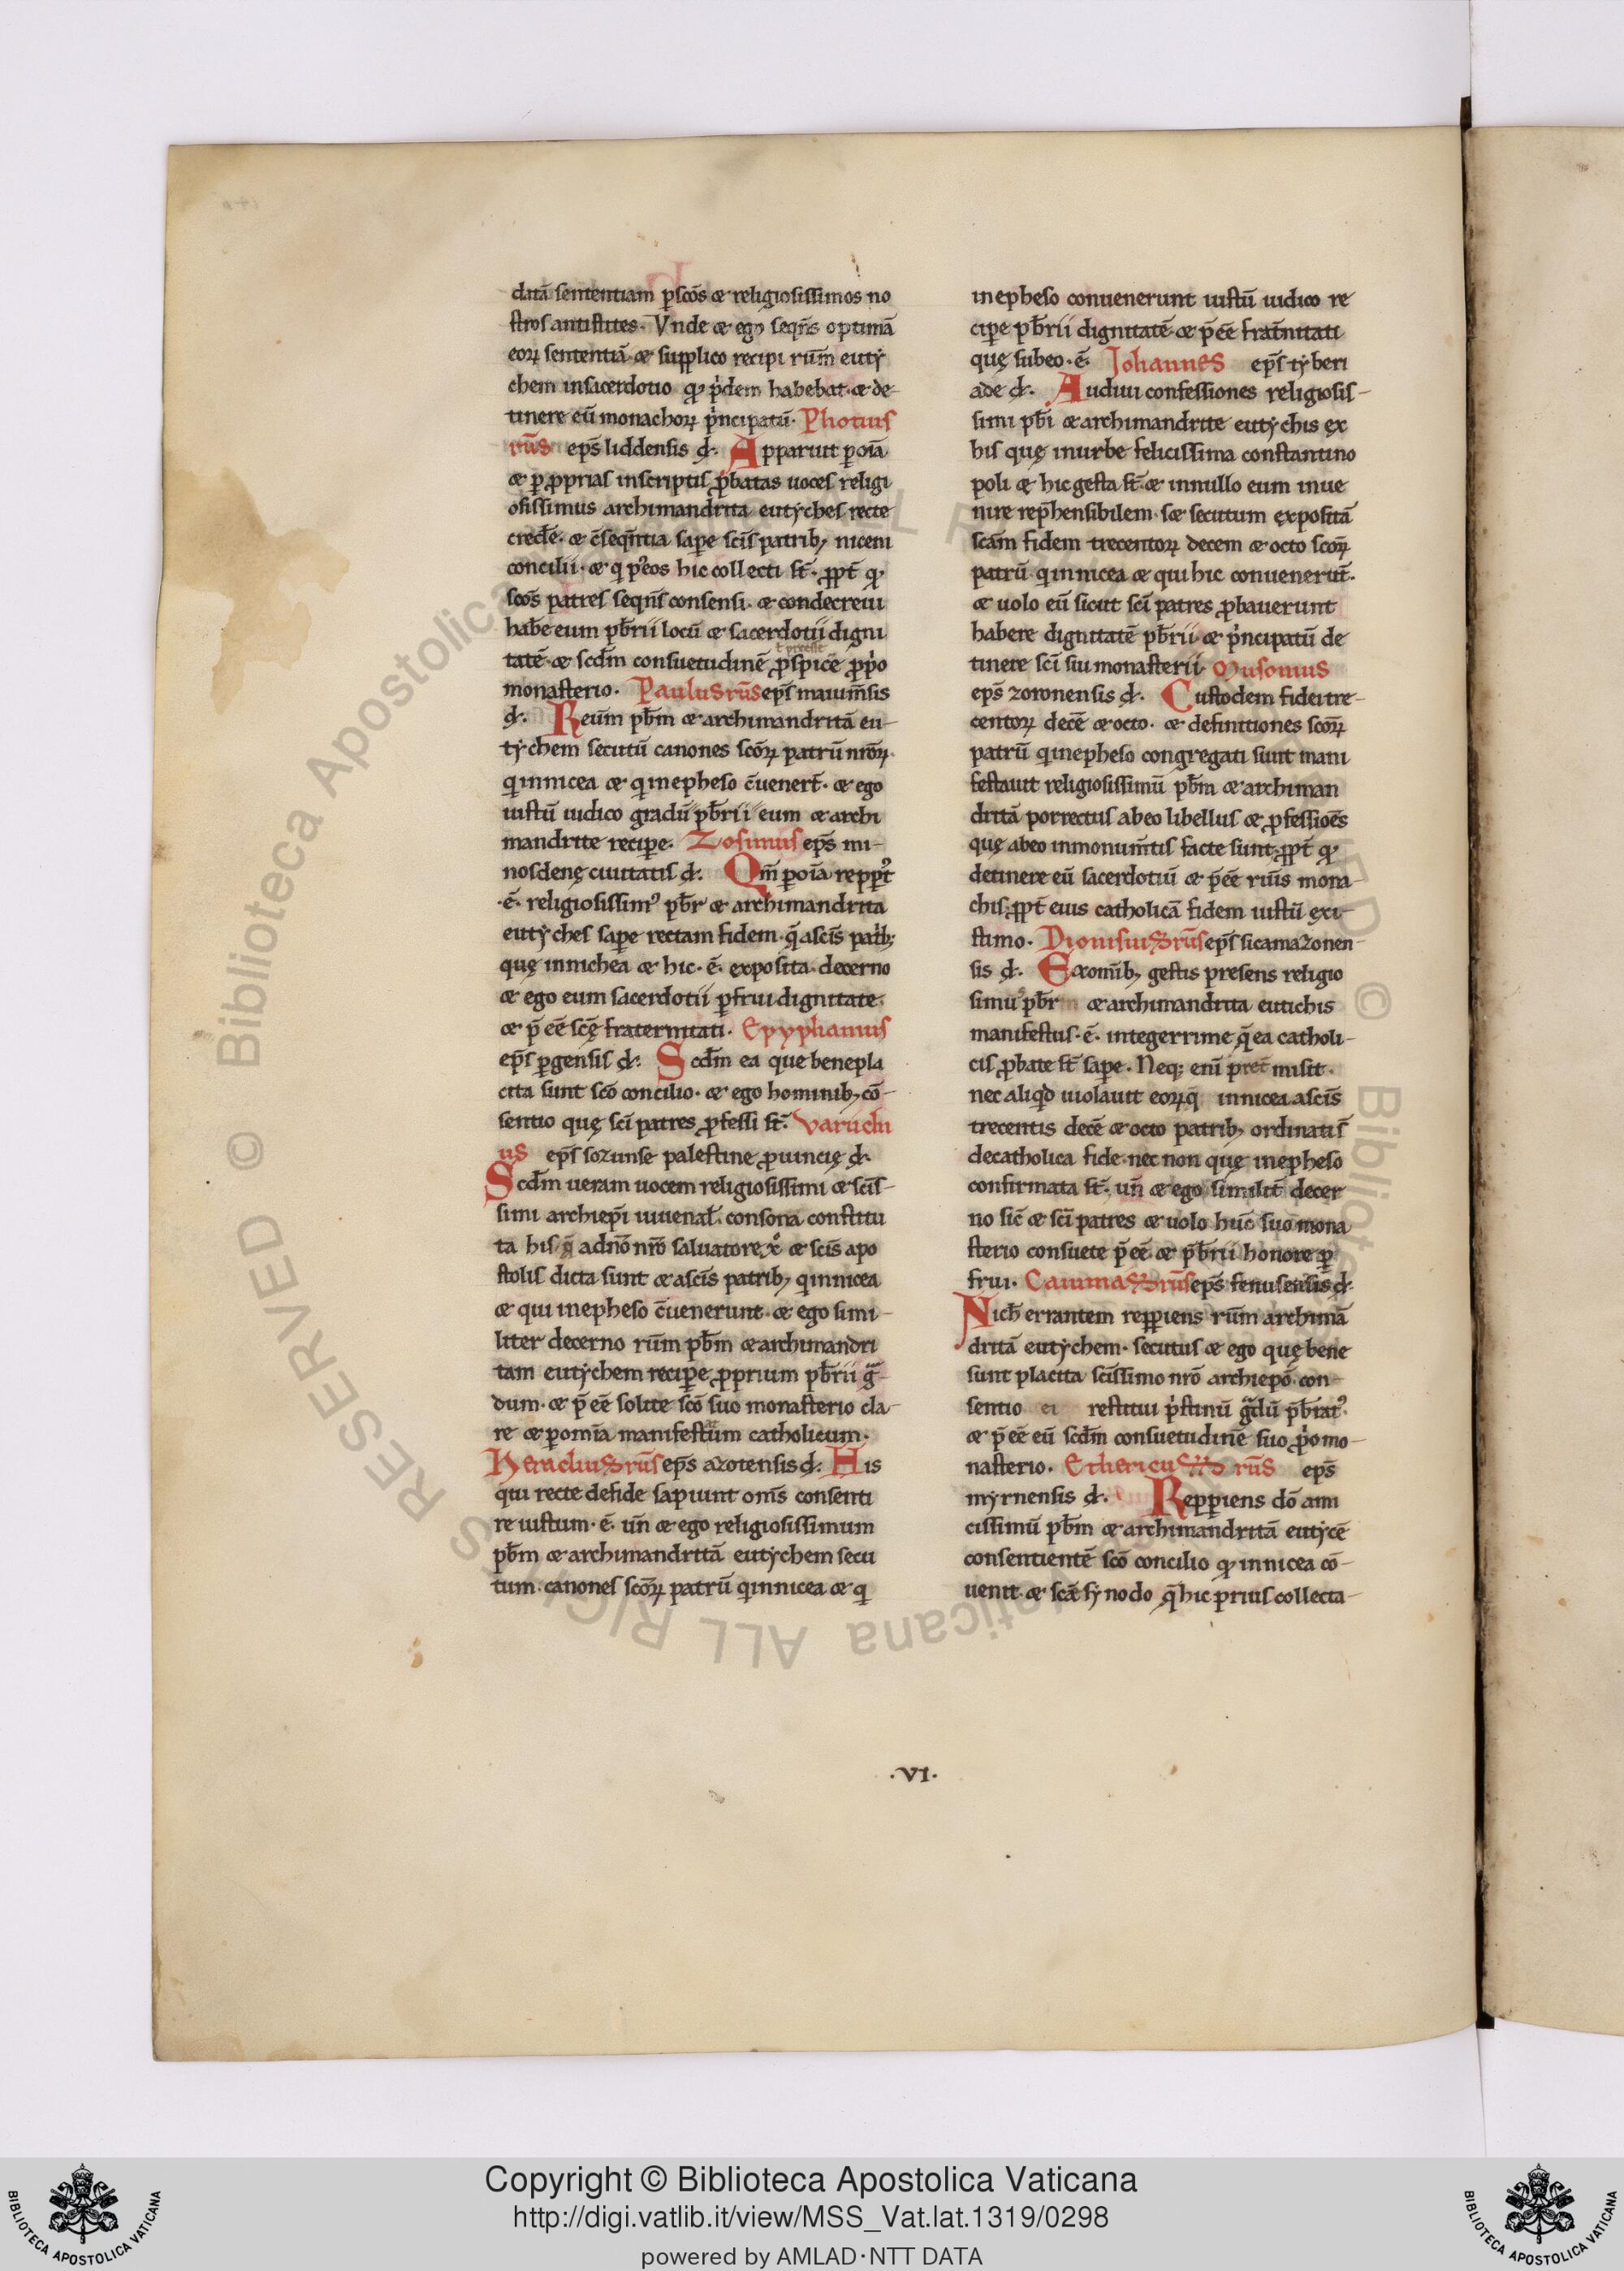 datā sententiam ꝑ scōs & religiosissimos no
stros antistites. Vnde & ego seqn̄s optimā
eoꝝ sententiā & supplico recipi rūm euty
chem in sacerdotio qđ p̍dem habebat. & de-
tinere eū monachoꝝ p̍ncipatū. Photius
rūs ep̄s liddensis đ. Apparuit ꝑ oīa
& ꝑ ꝓprias inscriptis ꝓbatas uoces religi
osissimus archimandrita eutyches recte
cređe. & c̄seqn̄tia sape scīs patrib; niceni
concilii. & q p̍ eos hic collecti st̄. ꝓpt̄ qđ
scōs patres seqn̄s consensi. & condecreui
habe eum pƀrii locū & sacerdotii digni
tatē & scđm consuetudinē ꝓspicē ꝓp̍o
monasterio. Paulus rūs ep̄s maium̄sis
đ. Reum̄ pƀm & archimandritā eu-
tychem secutū canones scōꝝ patrū nr̄oꝝ.
q in nicea & q in epheso c̄uenert̄. & ego
iustū iudico gradū pƀrii eum & archi
mandrite recipe. Zosimus ep̄s mi-
nosdenę ciuitatis đ. Qm̄ ꝑ oīa reppt̄
.ē. religiosissim᾽ pƀr & archimandrita
eutyches sape rectam fidem. q̄ a scīs patb;
quę in nichea & hic .ē. exposita. decerno
& ego eum sacerdotii ꝑfrui dignitate.
& p̄ eē scę̄ fraternitati. Epyphanius
ep̄s ꝑgensis đ. Scđm ea que benepla
cita sunt scō concilio. & ego hominib; cō-
sentio quę scī patres ꝓfessi st̄. Varuchi
us ep̄s sozunse palestine ꝓuincię đ.
Scđm ueram uocem religiosissimi & scīs-
simi archiep̄i iuuenal̄. consona constitu
ta his q̄ a dn̄o nr̄o saluatore x̄ & scīs apo
stolis dicta sunt & a scīs patrib; q in nicea
& qui in epheso c̄uenerunt. & ego simi-
liter decerno rūm pƀm & archimandri
tam eutychem recipe ꝓprium pƀrii gͣ-
dum. & p̄ eē solite scō suo monasterio cla-
re & ꝑ omīa manifestum catholicum.
Heraclius rūs ep̄s azotensis đ. His
qui recte de fide sapiunt om̄s consenti
re iustum .ē. un̄ & ego religiosissimum
pƀm & archimandritā eutychem secu
tum. canones scōꝝ patrū q in nicea & q
in epheso conuenerunt iustū iudico re
cipe pƀrii dignitatē & p̄eē frat̄nitati
quę subeo .ē. Johannes ep̄s tyberi
ade đ. Audiui confessiones religiosis-
simi pƀi & archimandrite eutychis ex
his quę in urbe felicissima constantino
poli & hic gesta st̄. & in nullo eum inue
nire rep̄hensibilem. sæ secutum expositā
scām fidem trecentoꝝ decem & octo scōꝝ
patrū. q in nicea & qui hic conuenerūt.
& uolo eū sicut scī patres ꝓbauerunt
habere dignitatē pƀrii. & p̍ncipatū de
tinere scī sui monasterii. Musonius
ep̄s zoronensis đ. Custodem fidei tre-
centoꝝ decē & octo. & definitiones scōꝝ
patrū q in epheso congregati sunt mani
festauit religiosissimū pƀm & archiman
dritā porrectus ab eo libellus & ꝓfessioēs
quę ab eo in monum̄tis facte sunt. ꝓpt̄ qđ
detinere eū sacerdotiū & p̄eē riūs mona
chis. ꝓpt̄ eius catholicā fidem iustū exi-
stimo. Dionisius rūs ep̄s sicamazonen-
sis đ. Ex omīb; gestis presens religio
simu᾽ pƀr & archimandrita eutichis
manifestus .ē. integerrime q̄ ea catholi-
cis ꝓbate st̄ sape. Neq; enī pret̄misit.
nec aliqđ uiolauit eoꝝ q̄ in nicea a scīs
trecentis decē & octo patrib; ordinatis
de catholica fide. nec non quę in epheso
confirmata st̄. un̄ & ego similit̄ decer
no sic̄ & scī patres & uolo hūc suo mona
sterio consuete p̄ eē & pƀrii honore ꝑ
frui. Caiuma rūs ep̄s fenusensis đ.
Nich̄ errantem repꝑiens rūm archimā
dritā eutychem. secutus & ego quę bene
sunt placita scīssimo nr̄o archiepō. con-
sentio ei restitui p̍stinū gͣdū pƀiat᾽.
& p̄ eē eū scđm consuetudinē suo p̍o mo-
nasterio. Ethericus rūs ep̄s
myrnensis đ. Repꝑiens dō ami
cissimū pƀm & archimandritā eutycē
consentientē scō concilio qđ in nicea cō-
uenit. & scǣ synodo q̄ hic prius collecta-
.VI.
Copyright © Biblioteca Apostolica Vaticana
http://digi.vatlib.it/view/MSS_Vat.lat.1319/0298
powered by AMLAD·NTT DATA
© Biblioteca Apostolica Vaticana ALL RIGHTS RESERVED
BIBLIOTECA APOSTOLICA VATICANA
BIBLIOTECA APOSTOLICA VATICANA